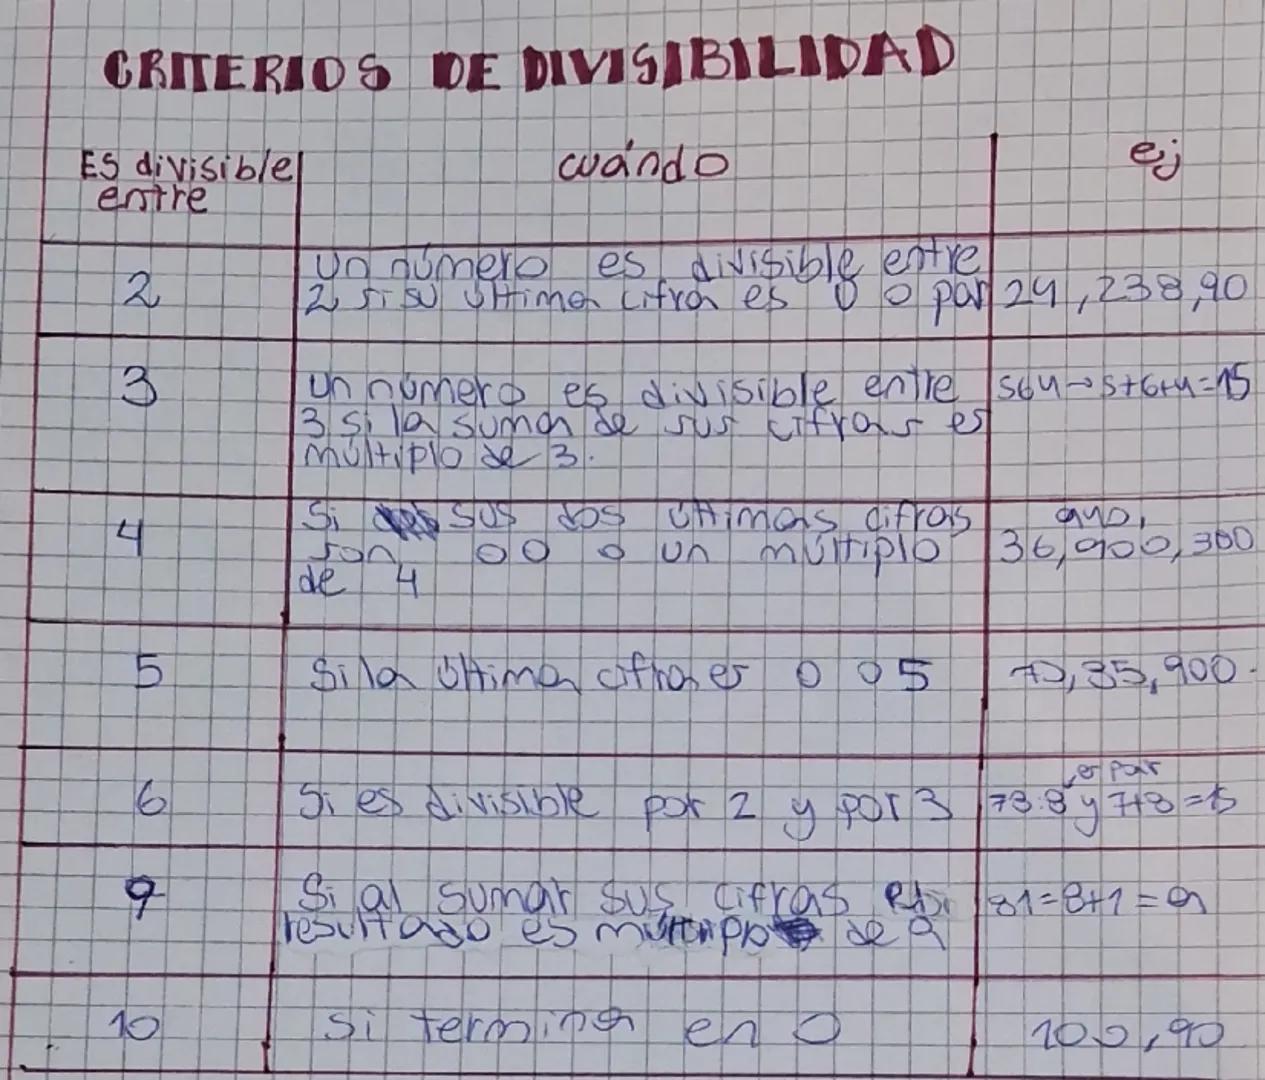 CRITERIOS DE DIVISIBILIDAD
ES divisible entre cuándo ej
2
un número es divisible entre
2 si su última cifra es 0 o par
24, 238, 90
3
un número es divisible entre
3 si la suma de sus cifras es
múltiplo de 3.
564→5+6+4=15
4
Si sus dos últimas cifras
son 00 o un múltiplo
de 4
36, 900, 300
5
Si la última cifra es 0 o 5
70, 35, 900.
6
Si es divisible por 2 y por 3
es par
78:8 y 7+8=15
9
Si al sumar sus cifras el
resultado es múltiplo de 9
81=8+1=9
10
si termina en 0
100, 90